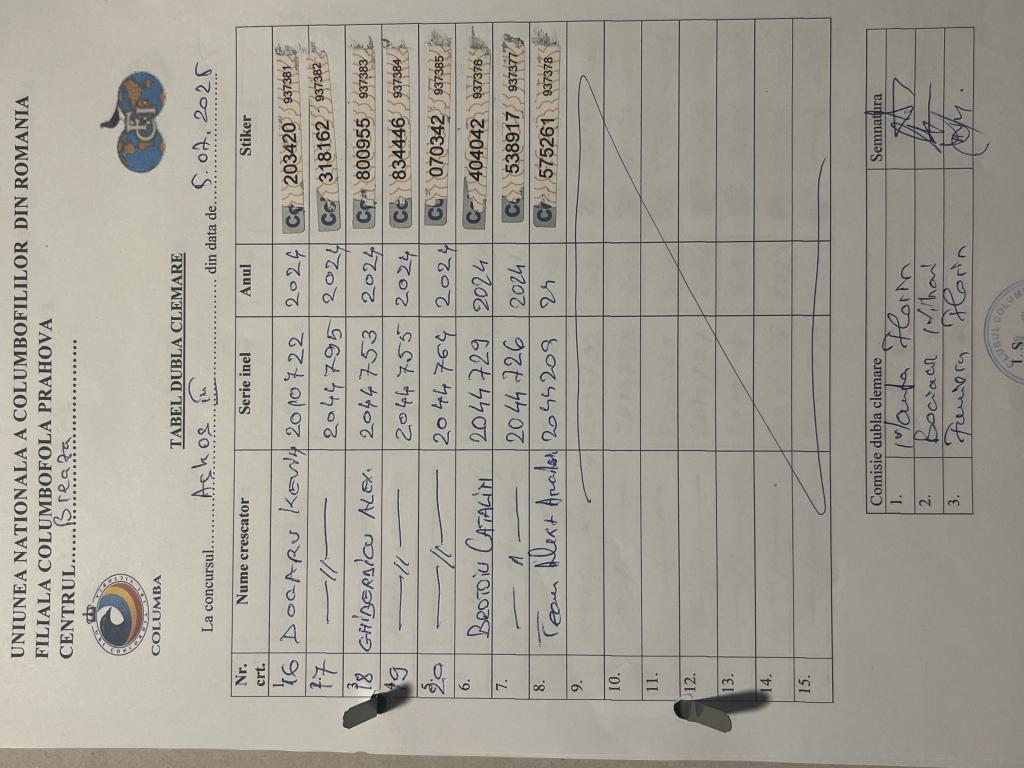 UNIUNEA NATIONALA A COLUMBOFILILOR DIN ROMANIA
FILIALA COLUMBOFOLA PRAHOVA
CENTRUL......Breaza..................
COLUMBA
FCI
TABEL DUBLA CLEMARE
La concursul........................ din data de ...5.07.2025
Nr. crt. Nume crescator Serie inel Anul Stiker
16 DOGARU KENY 2010722 2024 203420 937381
17 —//— 2044795 2024 318162 937382
18 GHIBERNICU ALEX. 2044753 2024 800955 937383
19 —//— 2044755 2024 834446 937384
20 —//— 2044764 2024 070342 937385
6. BROTOIU CATALIN 2044729 2024 404042 937376
7. —//— 2044726 2024 538917 937377
8. Team Alex+ 2044209 24 575261 937378
9.
10.
11.
12.
13.
14.
15.
Comisie dubla clemare Semnatura
1. Florin
2. Mihai
3. Florin
CLUBUL COLUM